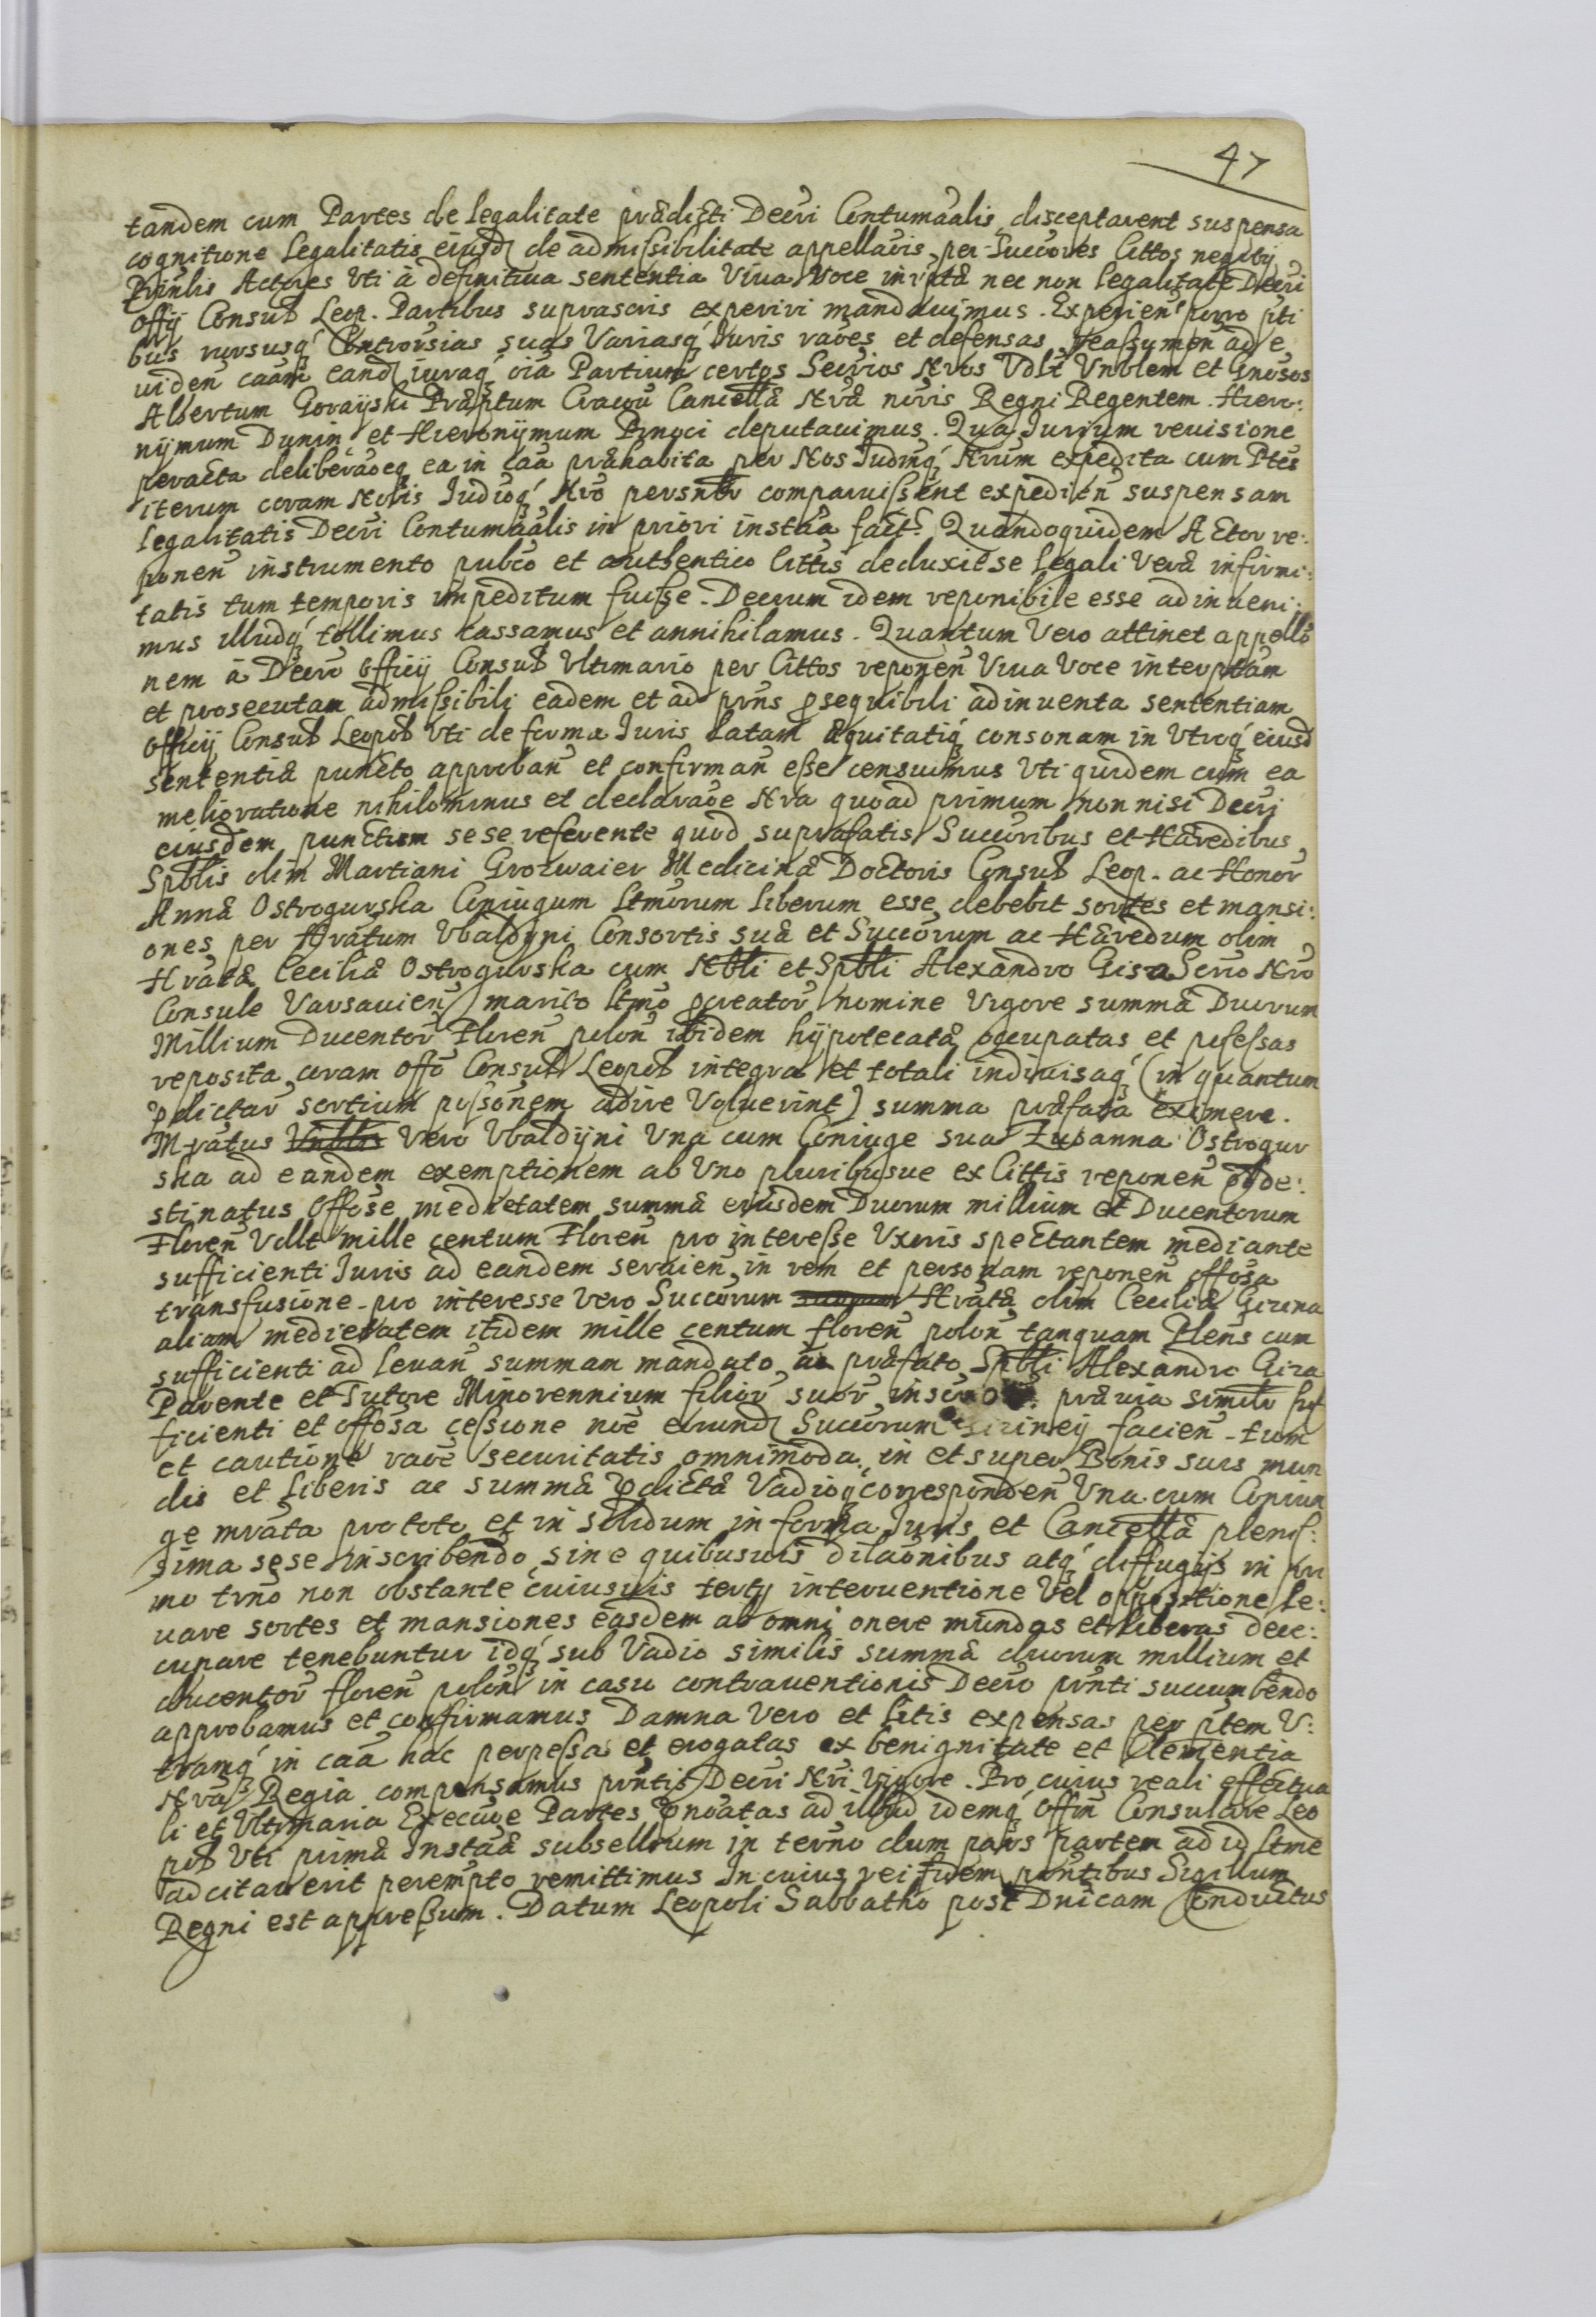 47
tandem cum Partes de legalitate prædicti Decri Contumaãlis disceptarent suspensa
cognitione legalitatis eiusd de admissibilitate appellaõis per Succores Cittos negotij
Prinlis Actores Uti à definitiua sententia Viua Voce inrptæ nec non legalitate Decri
Offij Consul Leop. Partibus suprascris experiri mandauimus. Experien porro pti
bus rursusq Controrsias suas Variasq Iuris raões et defensas reassumen ad e
uiden caam eand iuraq oia Partium certos Secrios Nros Vdlt Vnoblem et Gnosos
Albertum Gorayski Præptum Cracou Cancellæ Nræ noris Regni Regentem. Hiero:
nijmum Dunin et Hieronijmum Pinoci deputauimus. Qua Iurium reuisione
peracta deliberaõeq ea in caa præhabita per Nos Iudmq Nrum expedita cum Ptes
iterum coram Nobis Iudioq Nro persnlr comparuissent expedien suspensam
legalitatis Decri Contumaãlis in priori instãa fact. Quandoquidem Actor re:
ponen instrumento pubco et authentico Cittis deduxit se legali Veræ infirmi:
tatis tum temporis impeditum fuisse. Decrum idem reponibile esse adinueni:
mus illudq tollimus cassamus et annihilamus. Quantum Vero attinet appella
nem à Decro Officij Consul Vltimario per Cittos reponen Viua Voce interptam
et prosecutam admissibili eadem et ad prns psequibili adinuenta sententiam
Officij Consul Leopol Uti de forma Iuris latam Æquitatiq consonam in Utroq eiusd
sententiæ puncto approban et confirman esse censuimus Uti quidem cum ea
melioratione nihilominus et declaraõe Nra quoad primum non nisi Decri
eiusdem punctum sese referente quod suprafatis Succoribus et Hæredibus
Spblis olim Martiani Grozwaier Medicinæ Doctoris Consul Leop. ac Honor
Annæ Ostrogurska Coniugum ltmorum liberum esse debebit sortes et mansi:
ones per Hratum Vbaldyni Consortis suæ et Succorum ac Hæredum olim
Hratæ Ceciliæ Ostrogurska cum Nbli et Spbli Alexandro Giza Serio Nro
Consule Varsauien marito ltmo pcreator nomine Vigore summæ Duorum
Millium Ducentor Floren polon ibidem hijpotecatæ occupatas et possessas
reposita coram Offo Consul Leopol integra et totali indiuisaq (in quantum
pdictar sortium possonem adire Voluerint) summa præfata eximere.
Mratus Vero Vbaldijni Una cum Coniuge sua Zuzanna Ostrogur
ska ad eandem exemptionem ab Uno pluribusue ex Cittis reponen pde:
stinatus Offose medietatem summæ eiusdem Duorum millium et Ducentorum
Floren Vdlt mille centum Floren pro interesse Uxoris spectantem mediante
sufficienti Iuris ad eandem seruien in rem et personam reponen offosa
transfusione pro interesse Vero Succorum Hratæ olim Ceciliæ Gizina
aliam medietatem itidem mille centum floren polon tanquam Plens cum
sufficienti ad leuan summam mandato ac præfato Spbli Alexandro Giza
Parente et Tutore Minorennium filior suor præuia simili suf
ficienti et offosa cessione noe eorund Succorum facien tum
et cautione raõe securitatis omnimoda in et super Bonis suis mun
dis et liberis ac summæ pdictæ Vadioq corresponden Una cum Coniu
ge mrata pro toto et in solidum in forma Iuris et Cancellæ plenis:
sima sese inscribendo sine quibusuis dilaõnibus atq diffugijs in pri
mo trno non obstante cuiusuis tertij interuentione Vel oppositione le:
uare sortes et mansiones easdem ab omni onere mundas et liberas deoc:
cupare tenebuntur idq sub Vadio similis summæ duorum millium et
ducentor floren polon in casu contrauentionis Decro prnti succumbendo
approbamus et confirmamus Damna Vero et litis expensas per ptem V:
tramq in caa hac perpessas et erogatas ex benignitate et Clementia
Nra Regia compensamus prntis Decri Nri Vigore. Pro cuius reali effectua
li et Ultimaria Execuõe Partes pnoatas ad illud idemq Offin Consulare Leo
pol Uti primæ Instãæ subsellium in termo dum pars partem ad id ltme
adcitauerit perempto remittimus In cuius rei fidem prntibus Sigillum
Regni est appressum. Datum Leopoli Sabbatho post Dnicam Conductus